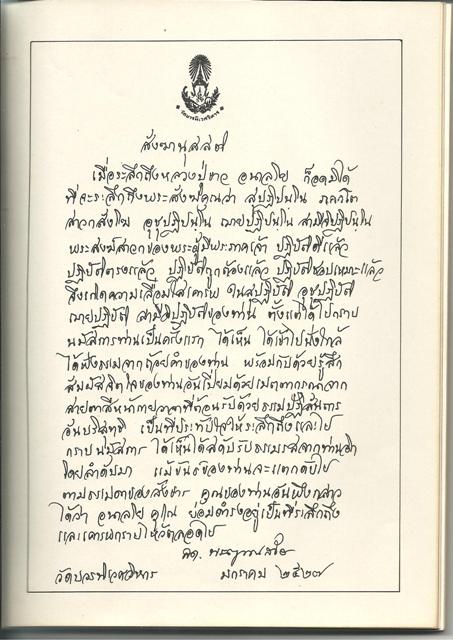 สังฆานุสสติ
เมื่อระลึกถึงหลวงปู่ขาว อนาลโย ก็อดมิได้
ที่จะระลึกถึงพระสังฆคุณว่า สุปฏิปนฺโน ภควโต
สาวกสงฺโฆ อุชุปฏิปนฺโน ญายปฏิปนฺโน สามีจิปฏิปนฺโน
พระสงฆ์สาวกของพระผู้มีพระภาคเจ้า ปฏิบัติดีแล้ว
ปฏิบัติตรงแล้ว ปฏิบัติถูกต้องแล้ว ปฏิบัติชอบเหมาะแล้ว
จึงเกิดความเลื่อมใสเคารพ ในสุปฏิบัติ อุชุปฏิบัติ
ญายปฏิบัติ สามีจิปฏิบัติของท่าน ตั้งแต่ได้ไปกราบ
นมัสการท่านเป็นครั้งแรก ได้เห็น ได้เข้าไปนั่งใกล้
ได้ฟังธรรมจากถ้อยคำของท่าน พร้อมกับด้วยรู้สึก
สัมผัสจิตใจของท่านอันเปี่ยมด้วยเมตตาการุณจาก
สายตาสีหน้ากายวาจาที่ต้อนรับด้วยธรรมปฏิสันถาร
อันบริสุทธิ์ เป็นที่ประทับใจให้ระลึกถึงและไป
กราบนมัสการ ได้เห็นได้สดับรับธรรมรสจากท่านอีก
โดยลำดับมา แม้ขันธ์ของท่านจะแตกดับไป
ตามธรรมดาของสังขาร คุณของท่านอันพึงกล่าว
ได้ว่า อนาลโย คุโณ ย่อมดำรงอยู่เป็นที่ระลึกถึง
และเคารพกราบไหว้ตลอดไป
วัดบวรนิเวศวิหาร มกราคม ๒๕๒๗